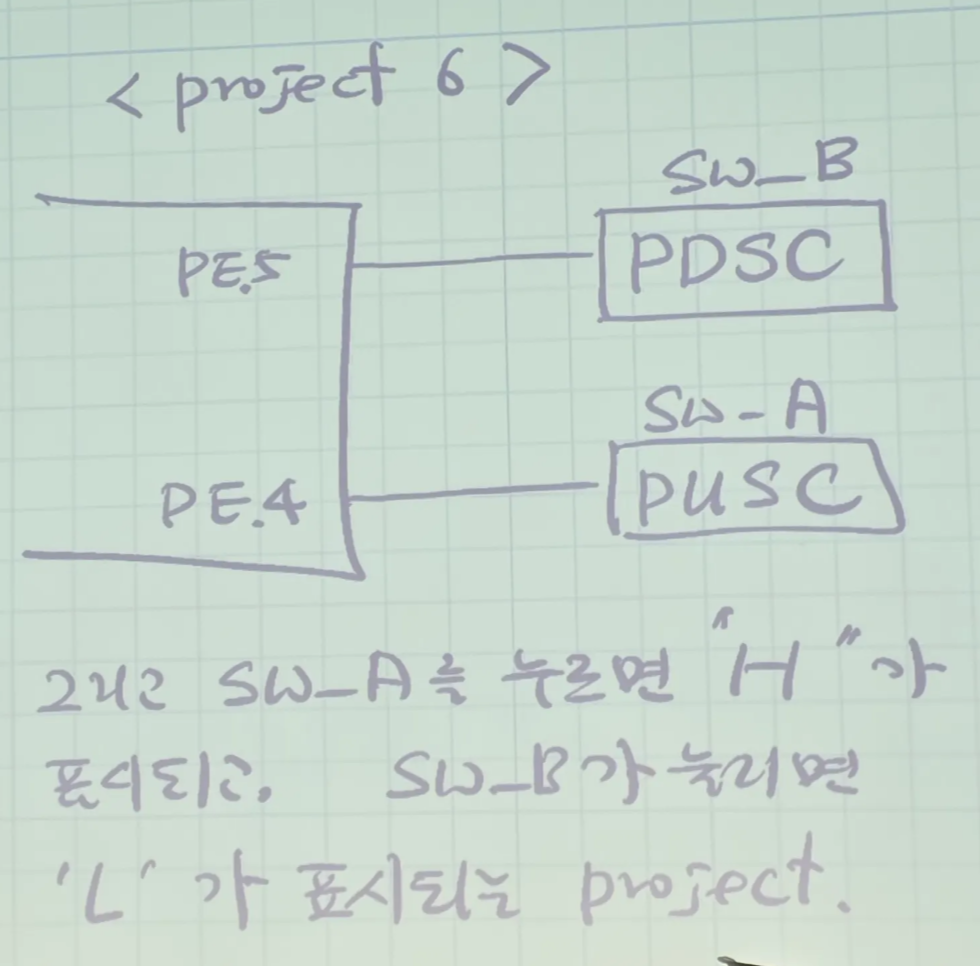 < project 6 >
SW_B
PE.5
PDSC
SW-A
PE.4
PUSC
그리고 SW_A를 누르면 "H"가
표시되고. SW_B가 눌리면
'L'가 표시되는 project.